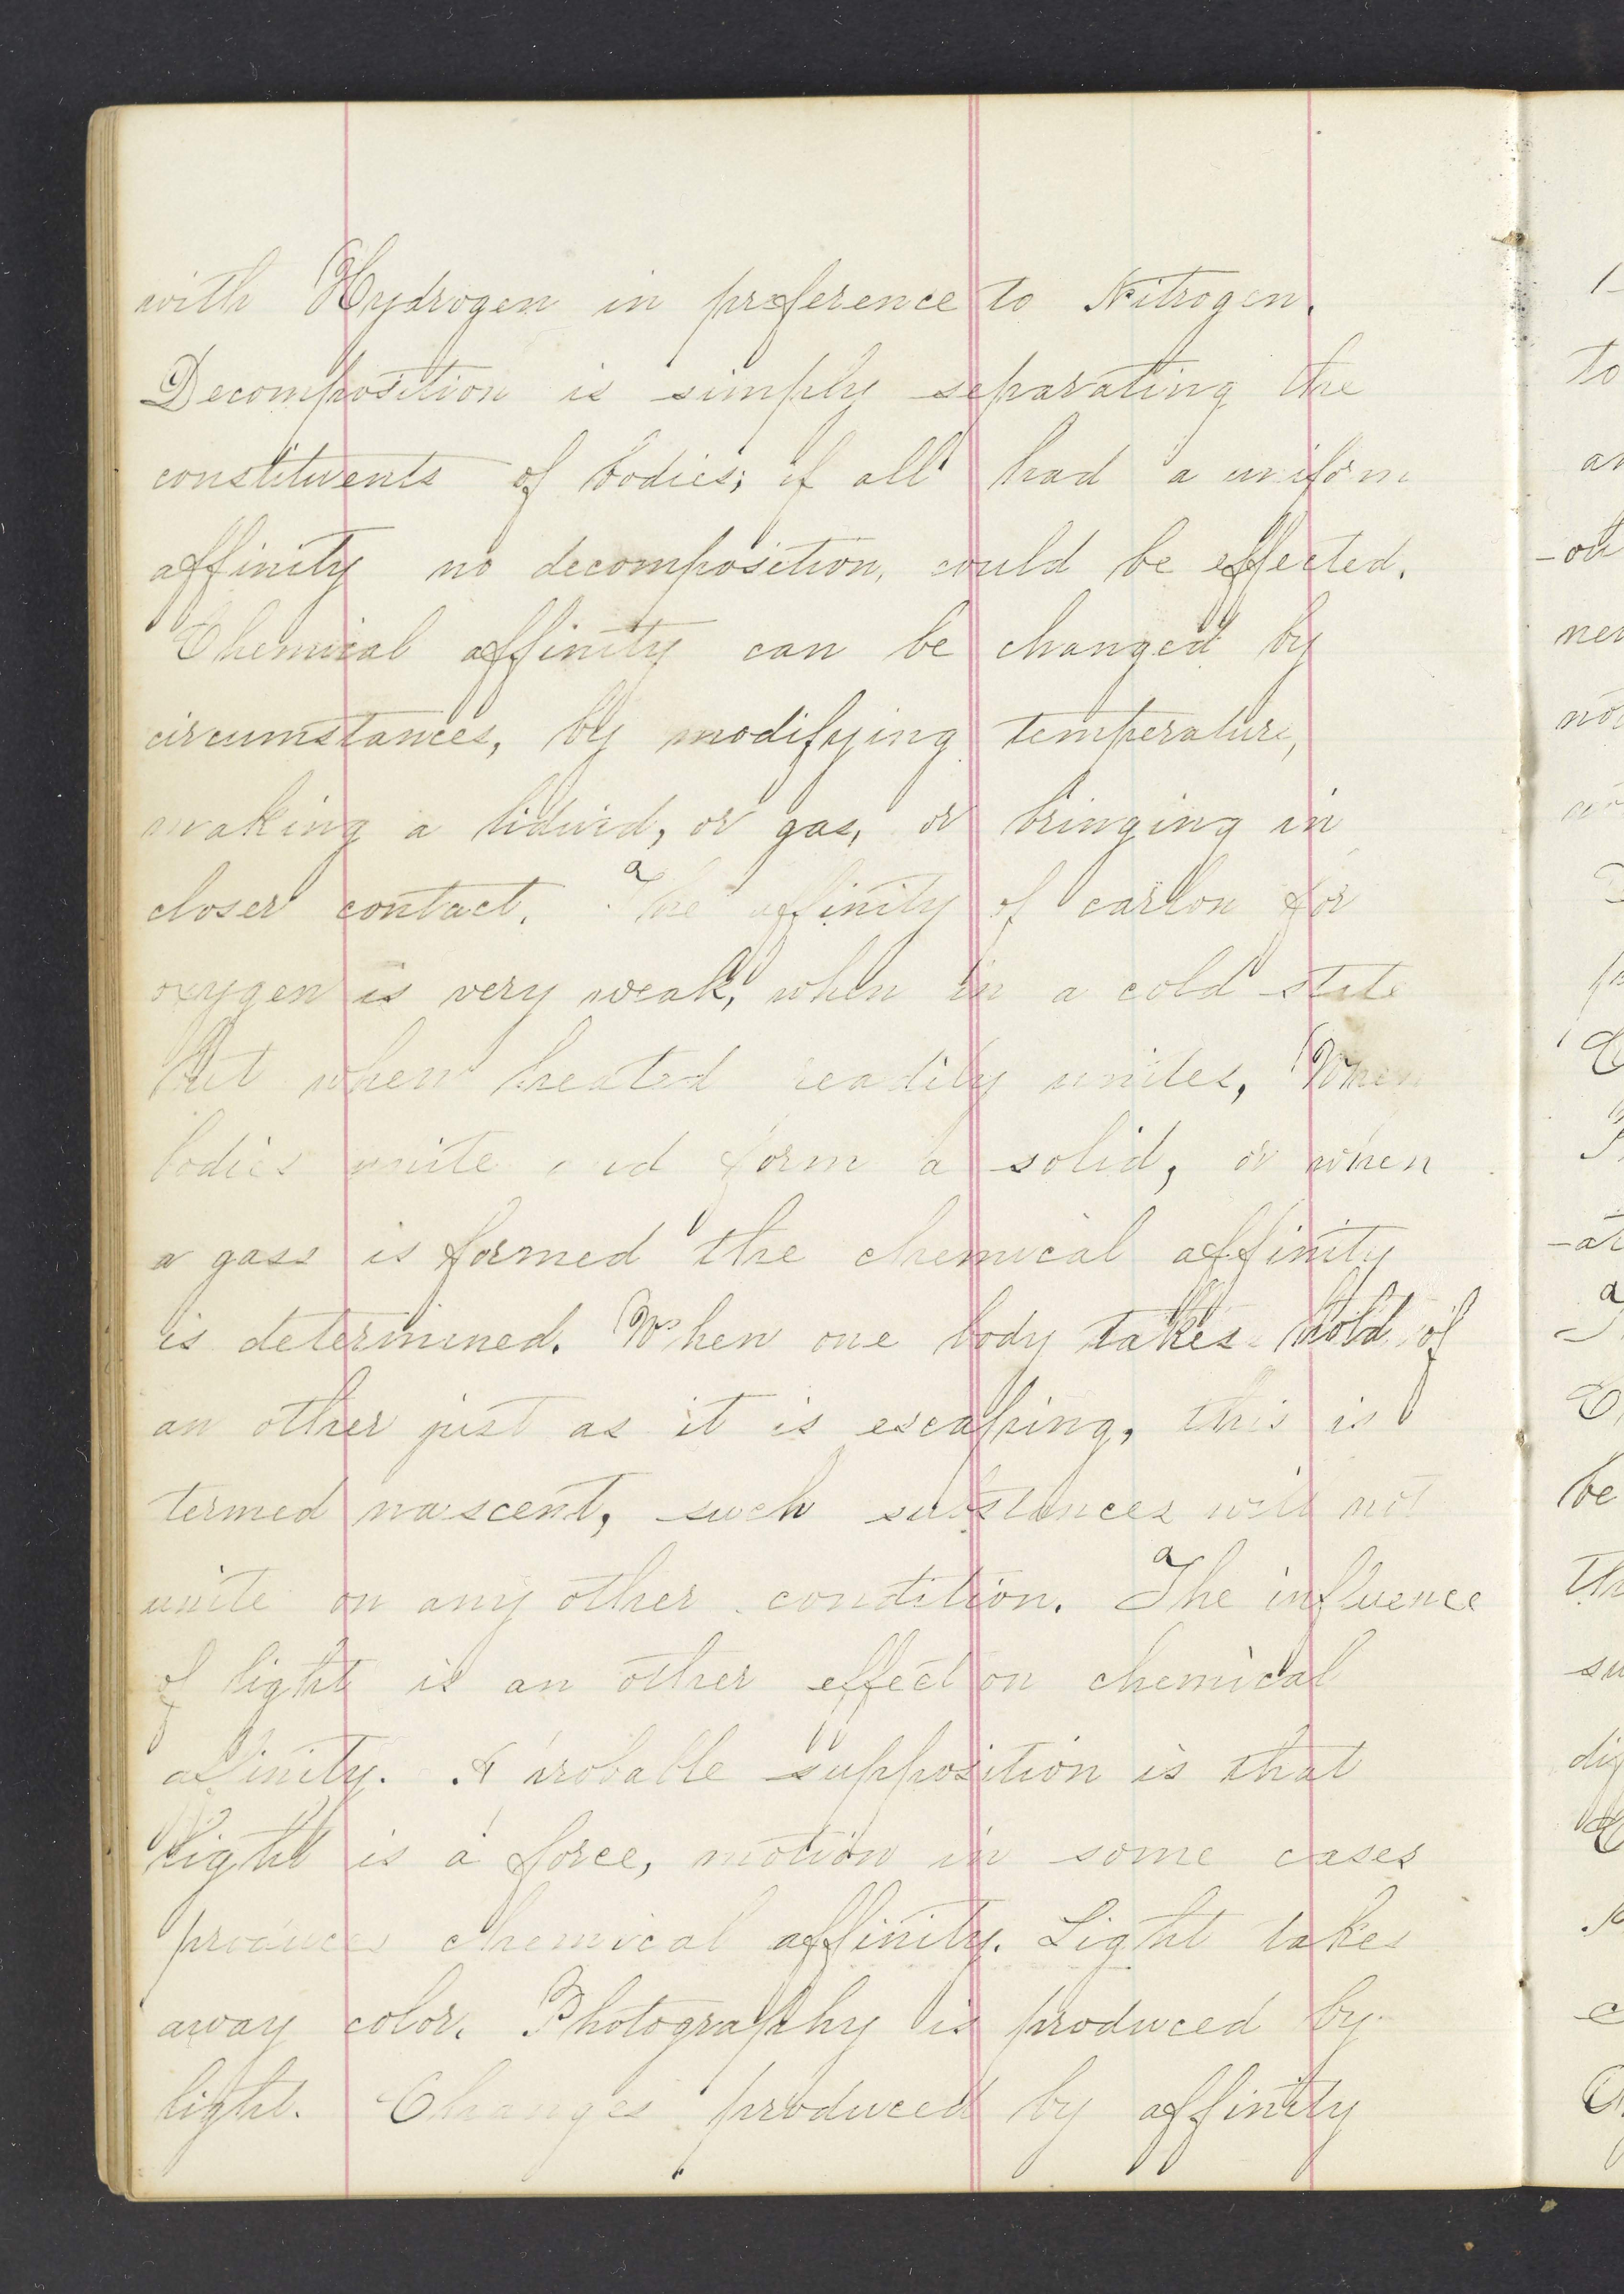 with Hydrogen in preference to Nitrogen.
Decomposition is simply separating the
constituents of bodies; if all had a uniform
affinity no decomposition, could be effected.
Chemical affinity can be changed by
circumstances, by modifying temperature,
making a liduid, or gas, or bringing in
closer contact. The affinity of carbon for
oxygen is very weak, when in a cold state
but when heated readily unites, When
bodies unite and form a solid, or when
a gass is formed the chemical affinity
is determined. When one body takes hold of
an other just as it is escaping, this is
termed nascent, such substances will not
unite on any other condition. The influence
of light is an other effect on chemical
affinity. A probable supposition is that
light is a force, motion in some cases
produces chemical affinity. Light takes
away color. Photography is produced by
light. Changes produced by affinity